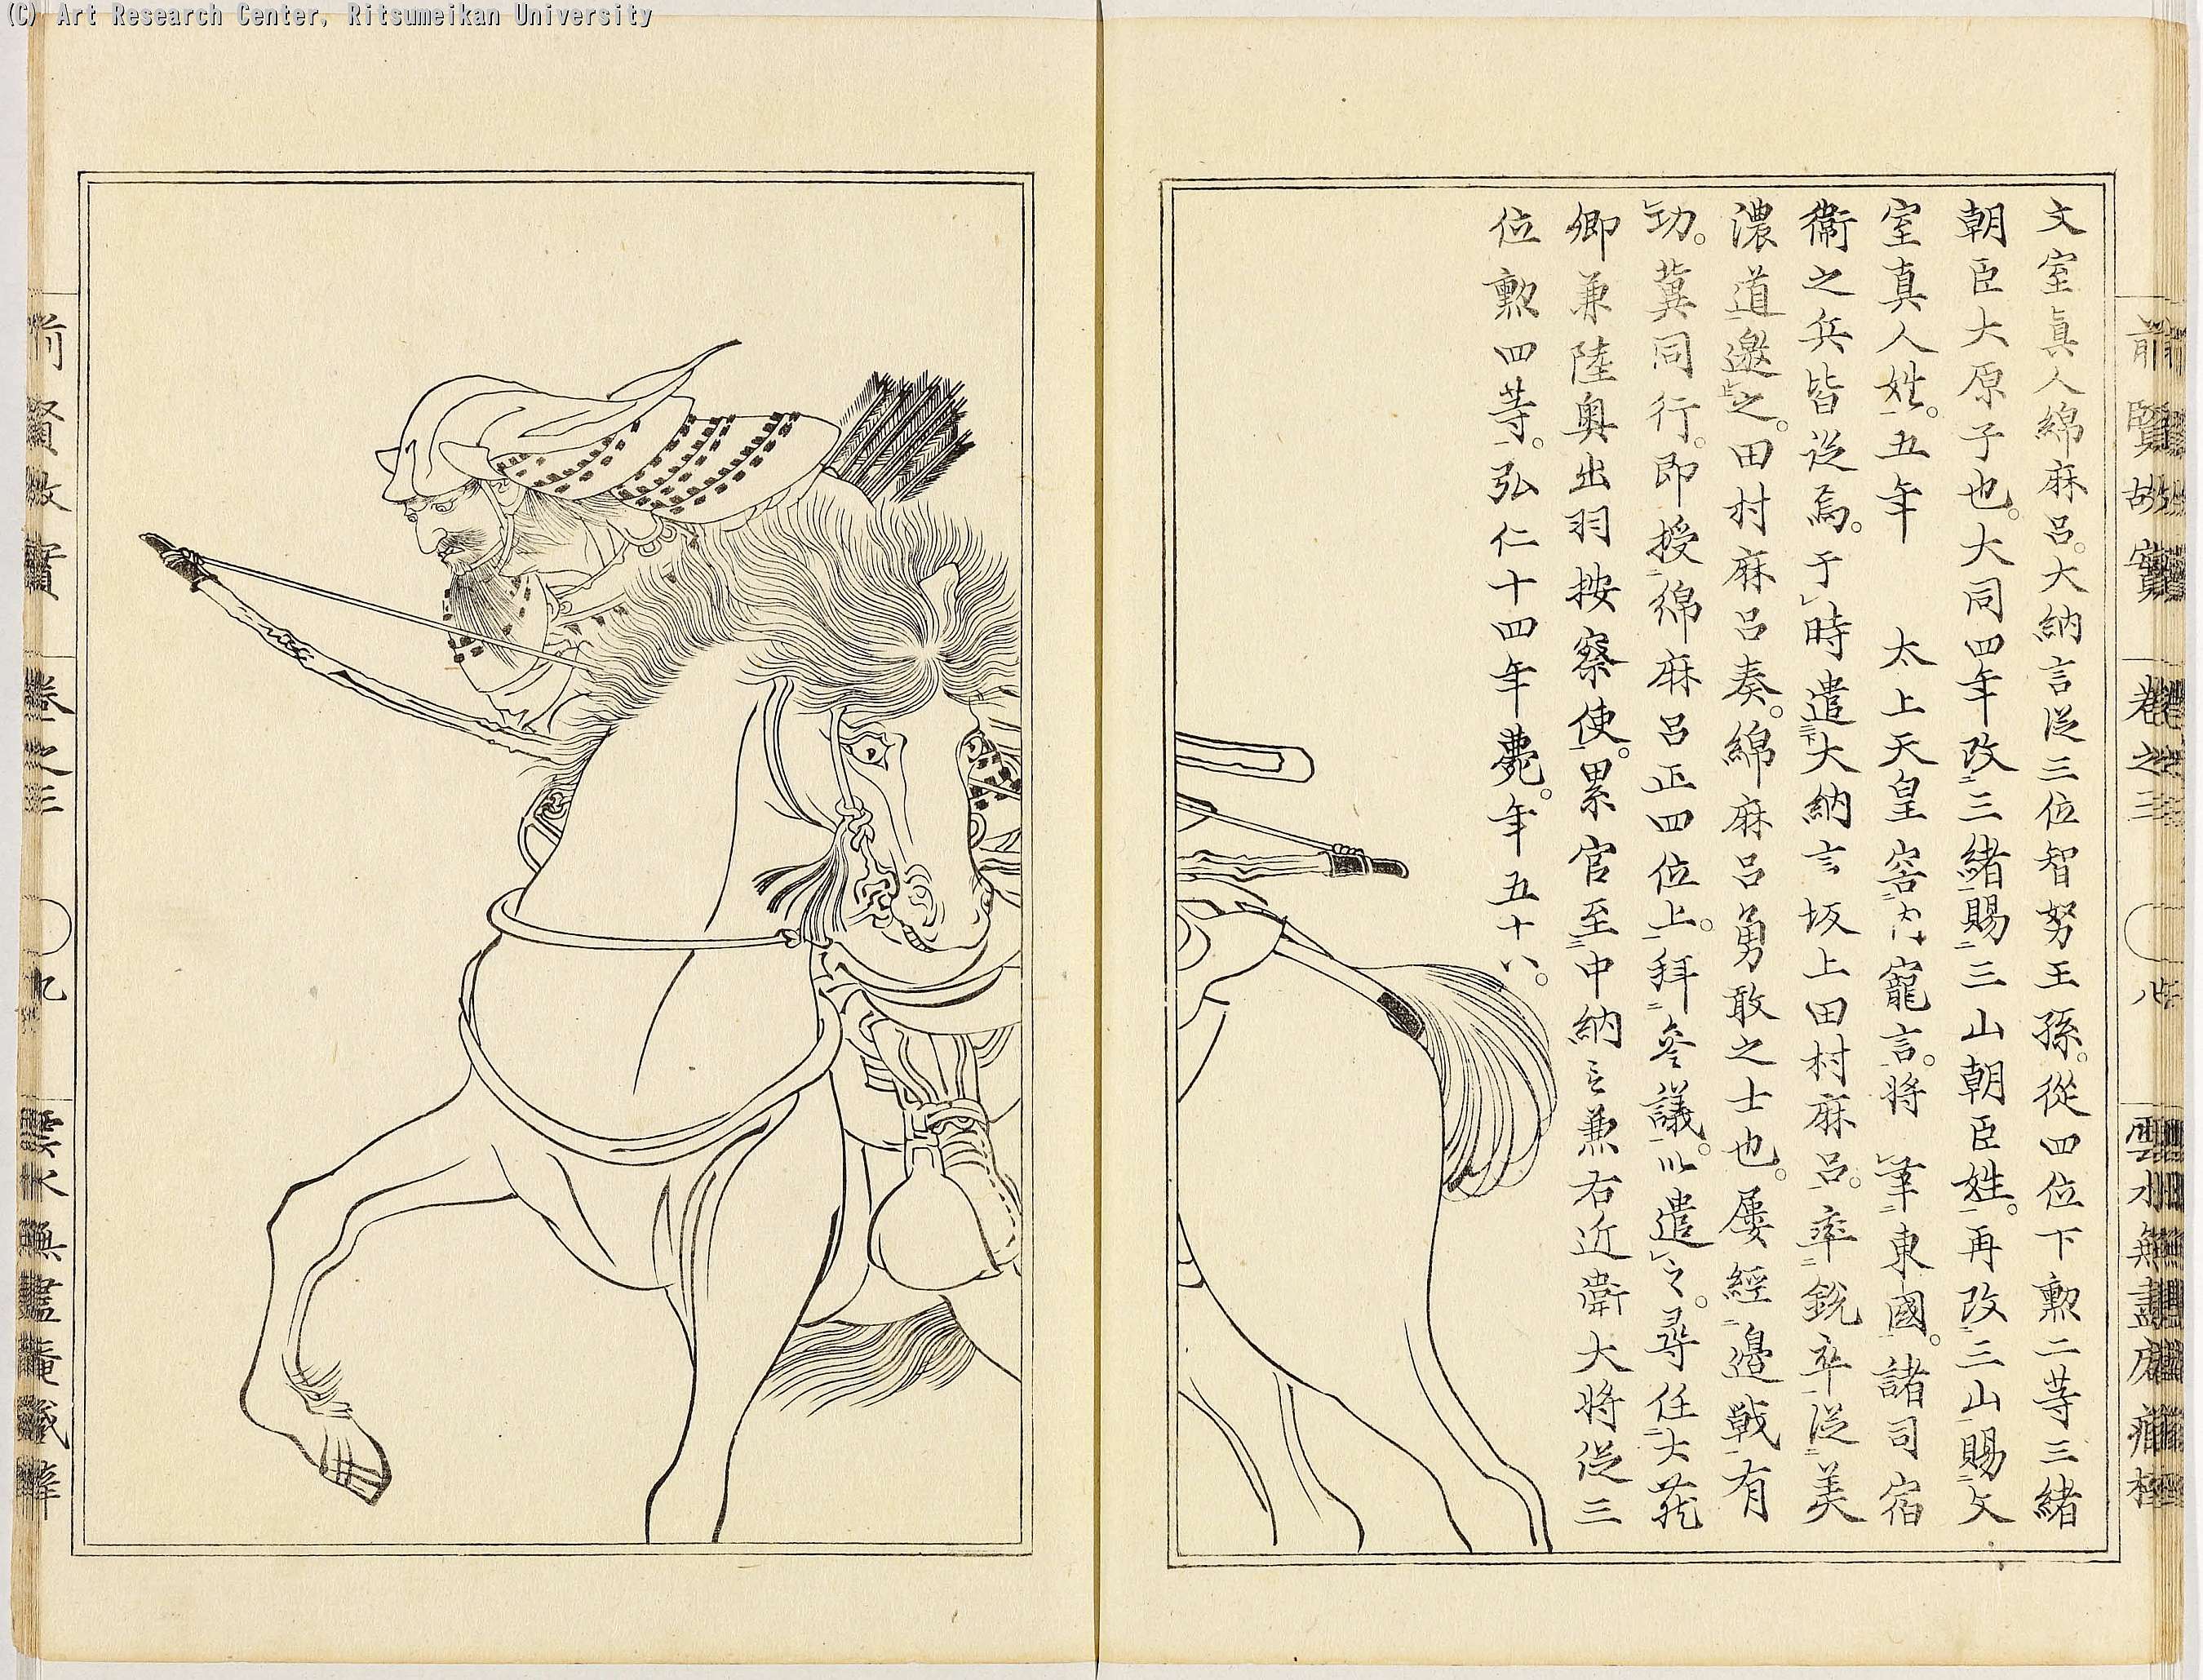 (C) Art Research Center, Ritsumeikan University
前賢故實 卷之三 八 雲水無盡庵
文室眞人綿麻呂。大納言從三位智努王孫。從四位下勲二等三緒
朝臣大原子也。大同四年改三緒賜三山朝臣姓。再改三山賜文
室真人姓。五年 太上天皇窖内寵言。將聿東國。諸司宿
衞之兵皆從焉。于時遣大納言坂上田村麻呂。率銳卒從美
濃道邀之。田村麻呂奏。綿麻呂勇敢之士也。屡經邊戰有
功。冀同行。即授綿麻呂正四位上。拜參議。以遣之。尋任大藏
卿兼陸奥出羽按察使。累官至中納言兼右近衞大將從三
位勲四等。弘仁十四年薨。年五十八。
前賢故實 卷之三 九 雲水無盡庵藏